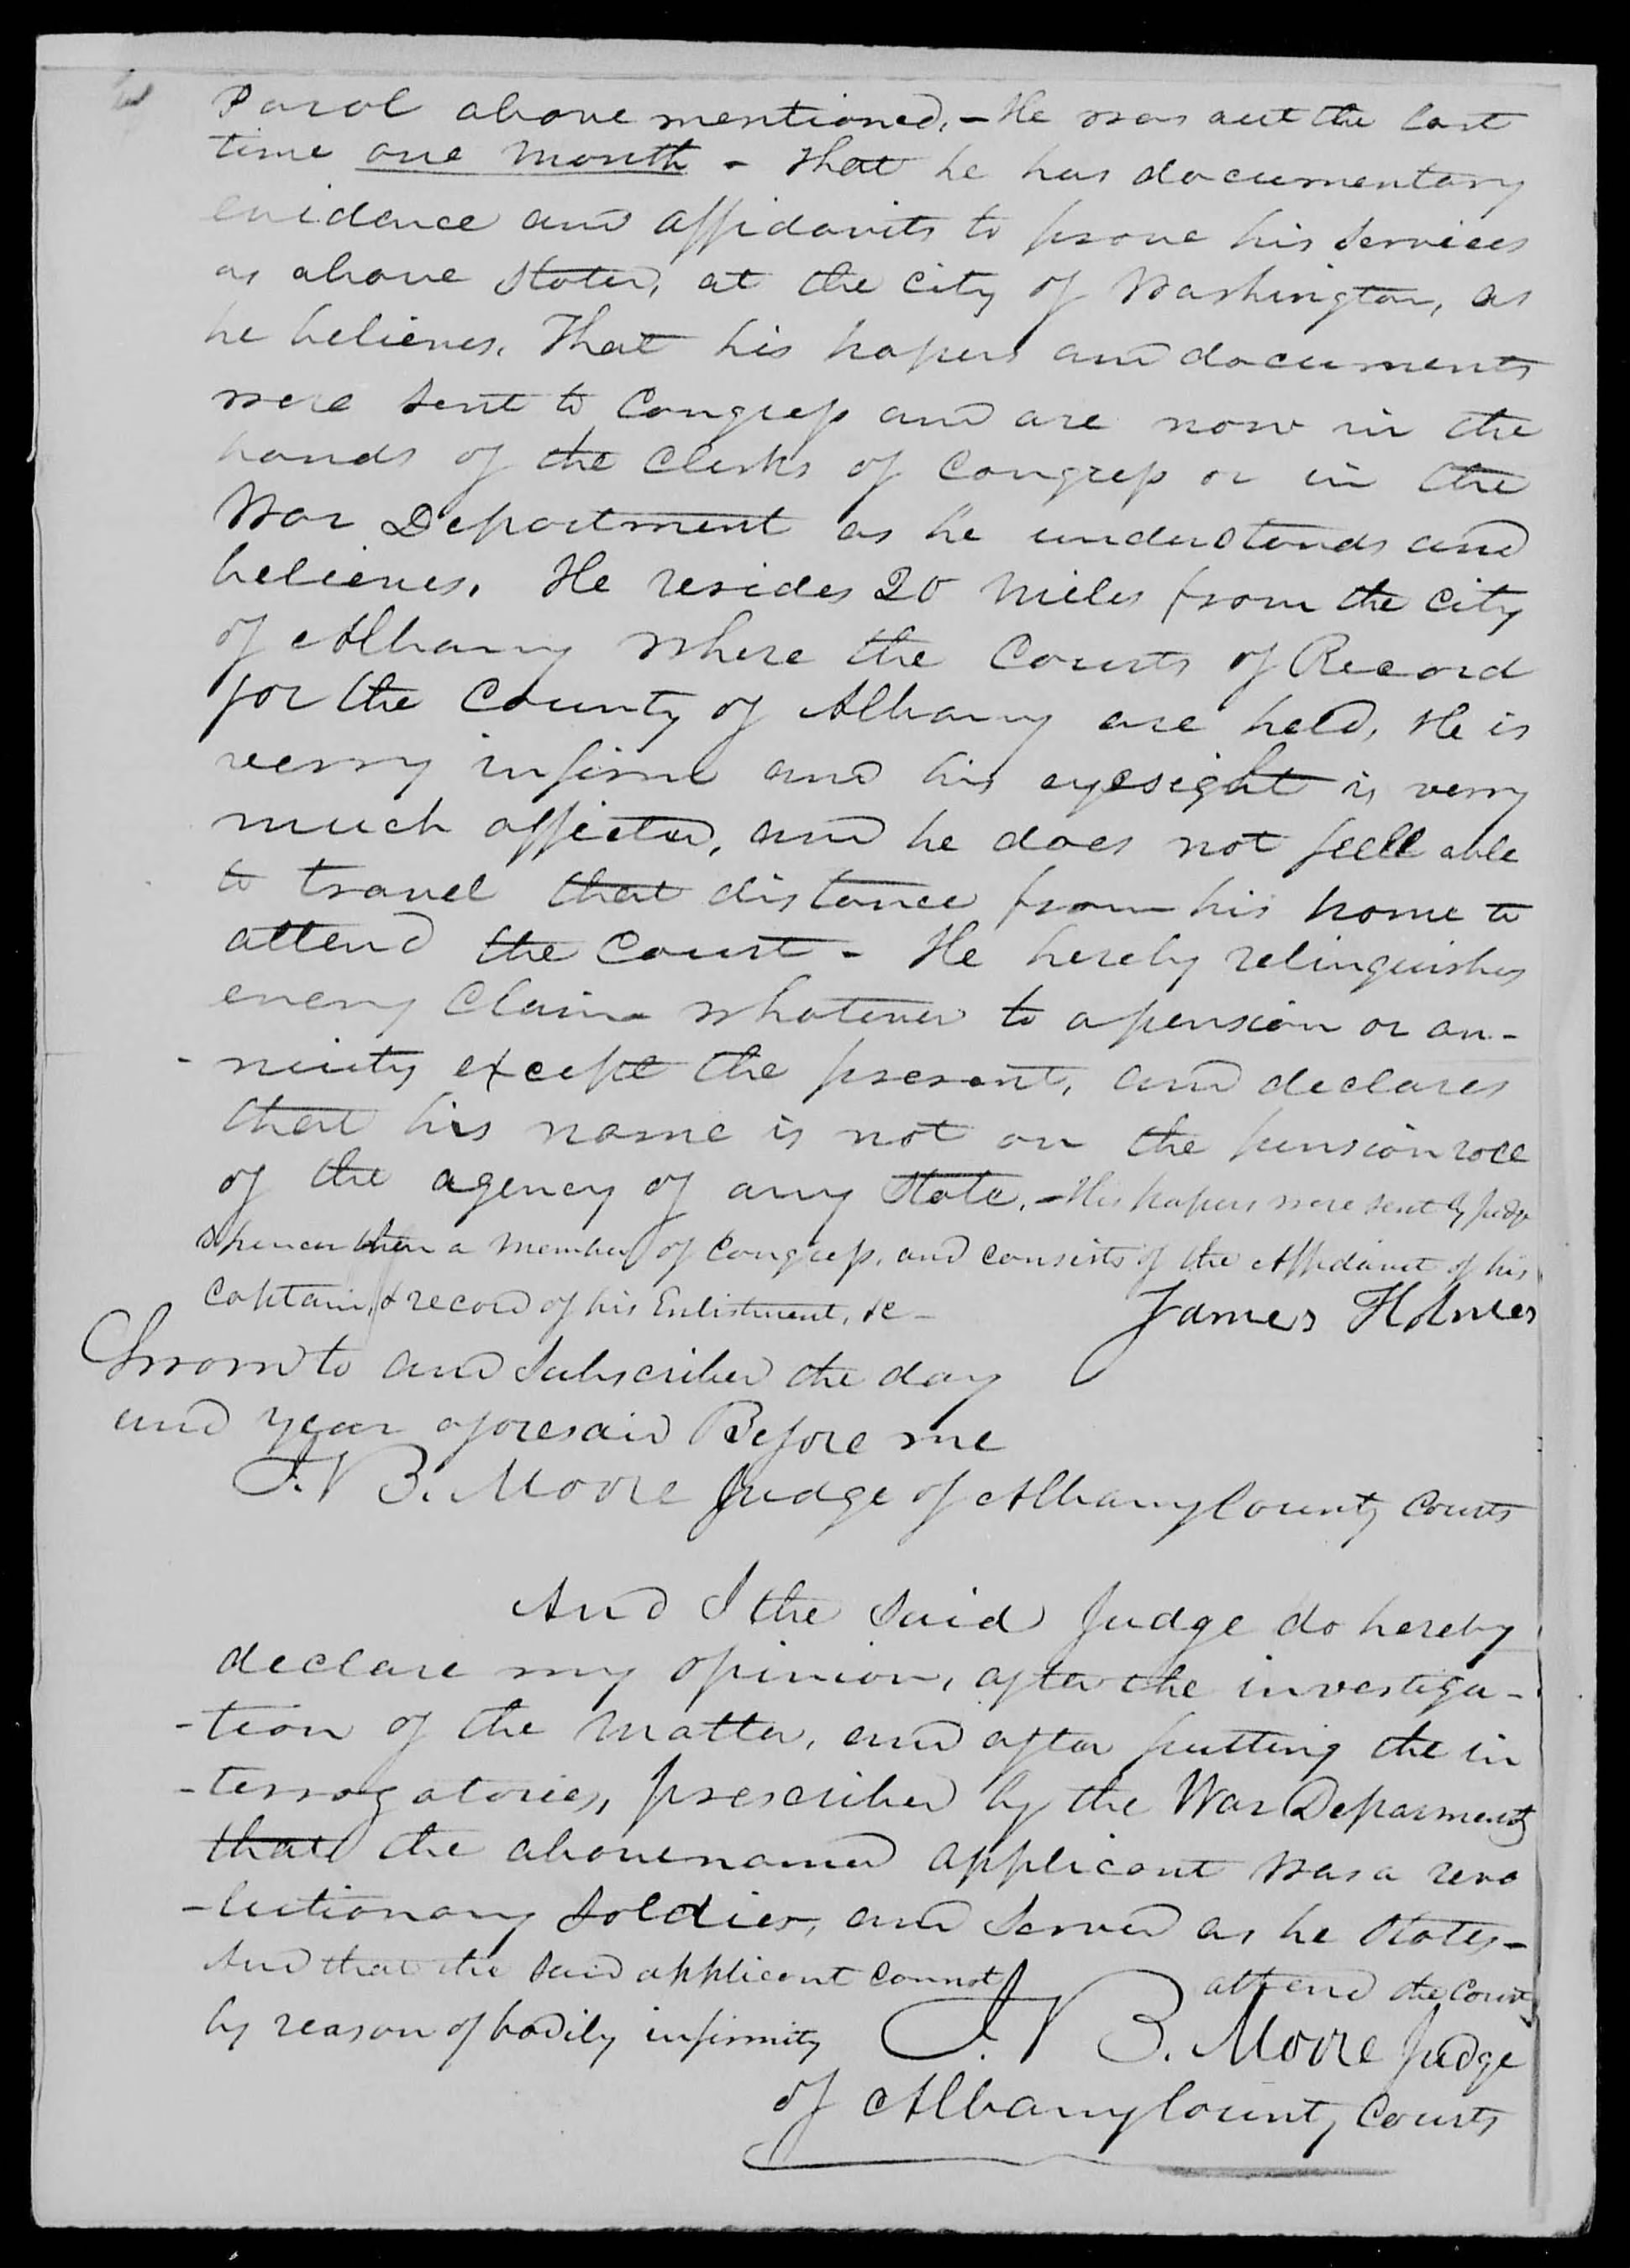 Parol above mentioned, - He was out the last
time one month - That he has documentary
evidence and affidavits to prove his services
as above stated, at the city of Washington, as
he believes. That his papers and documents
were sent to Congress and are now in the
hands of the Clerks of Congress or in the
War Department as he understands and
believes. He resides 20 miles from the city
of Albany where the Courts of Record
for the County of Albany are held, He is
verry infirm and his eyesight is verry
much affected, and he does not feell able
to travel that distance from his home to
attend the Court - He hereby relinquishes
every Claim whatever to a pension or an-
-nuity except the present, and declares
that his name is not on the pension roll
of the agency of any State. - His papers were sent by Judge
Spencer then a member of Congress, and consists of the Affidavit of his
Captain, & record of his Enlistment, &c -
James Holmes
Sworn to and Subscribed the day
and year aforesaid Before me
J. V B. Moore Judge of Albany County Courts
And I the said Judge do hereby
declare my opinion, after the investiga-
-tion of the matter, and after putting the in
-terrogatories, prescribed by the War Deparment
that the abovenamed applicant was a revo
-lutionary soldier, and served as he states -
And that the said applicant cannot attend the Court
by reason of bodily infirmity
J. V B. Moore Judge
of Albany County Courts